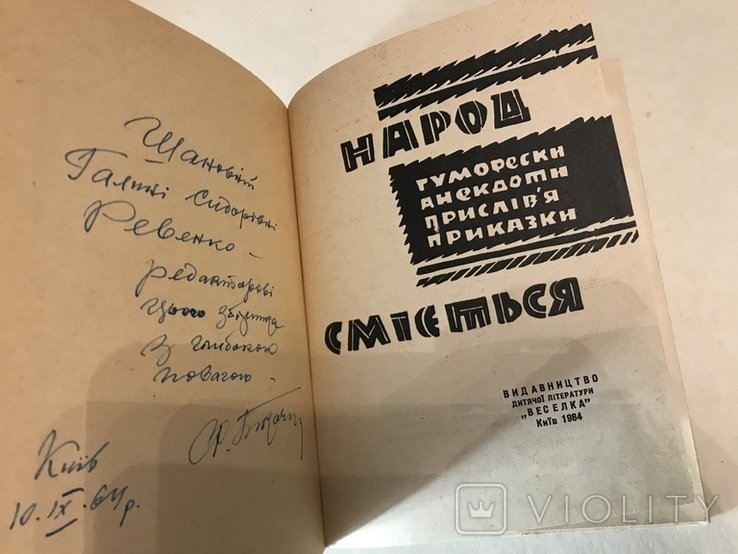 Шановній
Галині Сидорівні
Ревенко -
редакторові
цього збірника
з глибокою
повагою -
Київ
10.IX.64р.
НАРОД
ГУМОРЕСКИ
АНЕКДОТИ
ПРИСЛІВ'Я
ПРИКАЗКИ
СМІЄТЬСЯ
ВИДАВНИЦТВО
ДИТЯЧОЇ ЛІТЕРАТУРИ
„ВЕСЕЛКА"
Київ 1964
VIOLITY